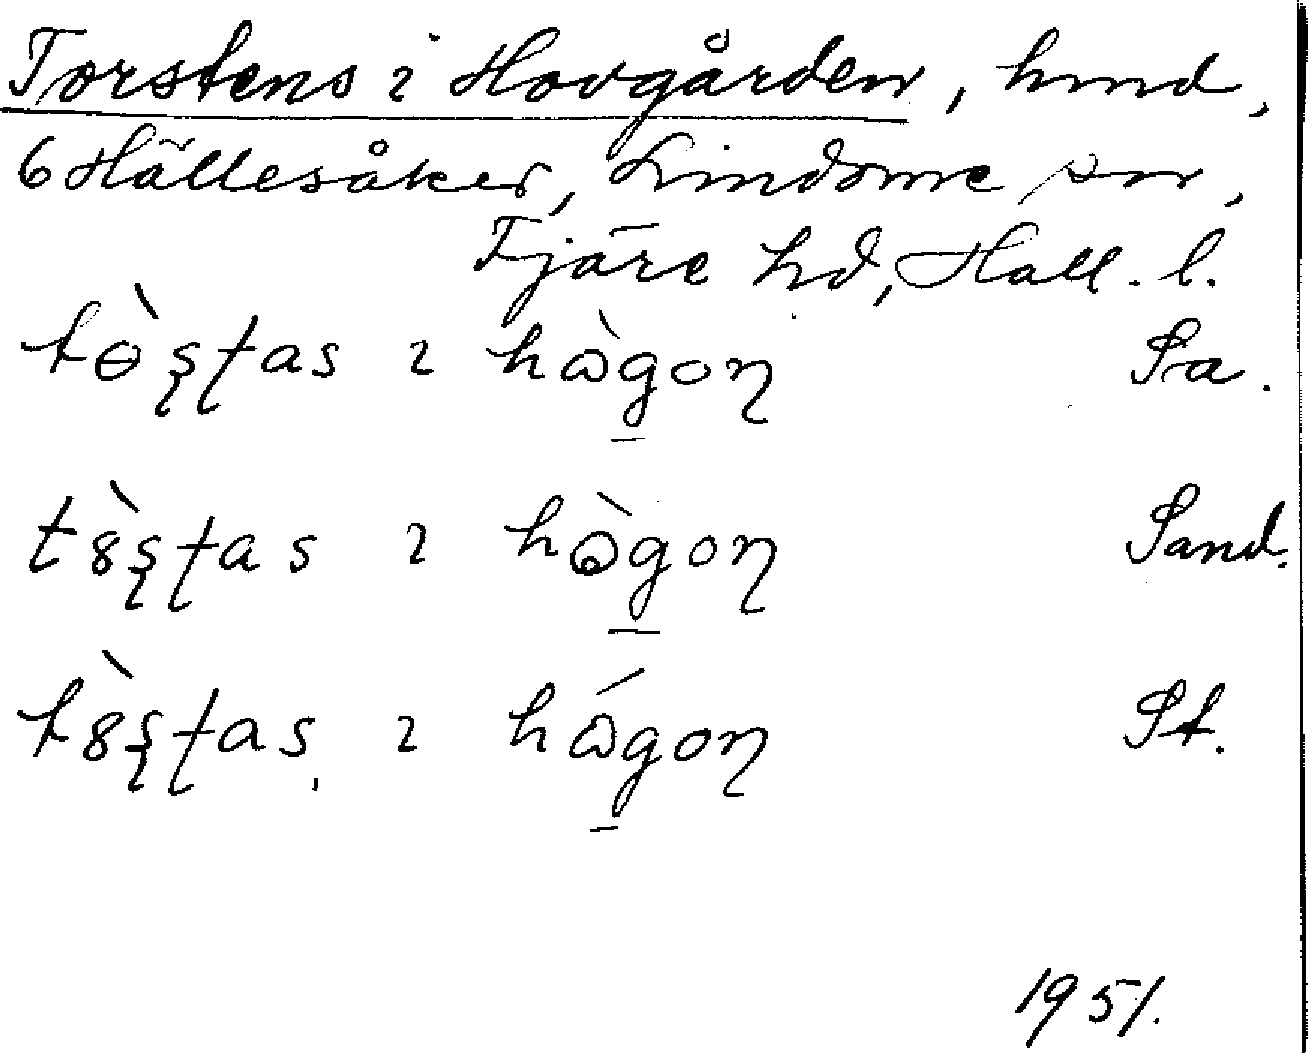 Torstens i Hovgården, hmd,
6 Hällesåker, Lindome sn,
Fjäre hd, Hall. l.
tɵ̀ʂʈas ɩ hὼgoɳ Sa.
t8̀ʂʈas ɩ hὼgoɳ Sand.
t8̀ʂʈas ɩ hώgoɳ St.
1951.